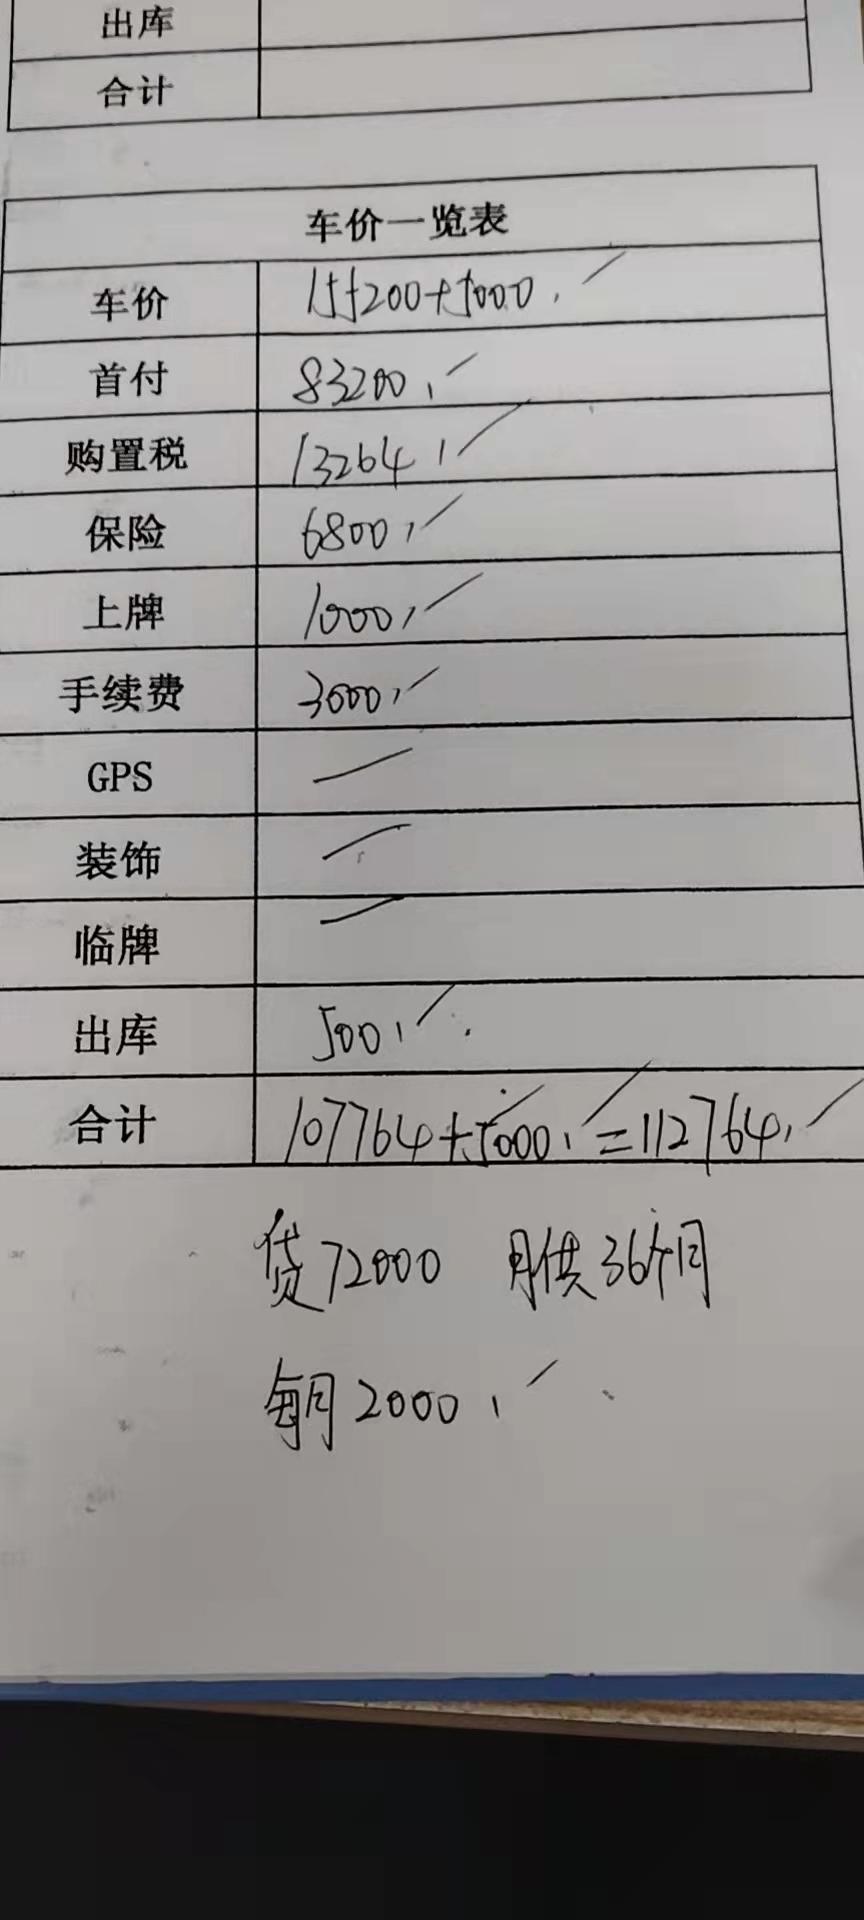 出库
合计
车价一览表
车价 155200+5000.
首付 83200.
购置税 13264.
保险 6800.
上牌 1000.
手续费 3000.
GPS
装饰
临牌
出库 500.
合计 107764+5000.=112764.
贷72000 月供36个月
每月2000.